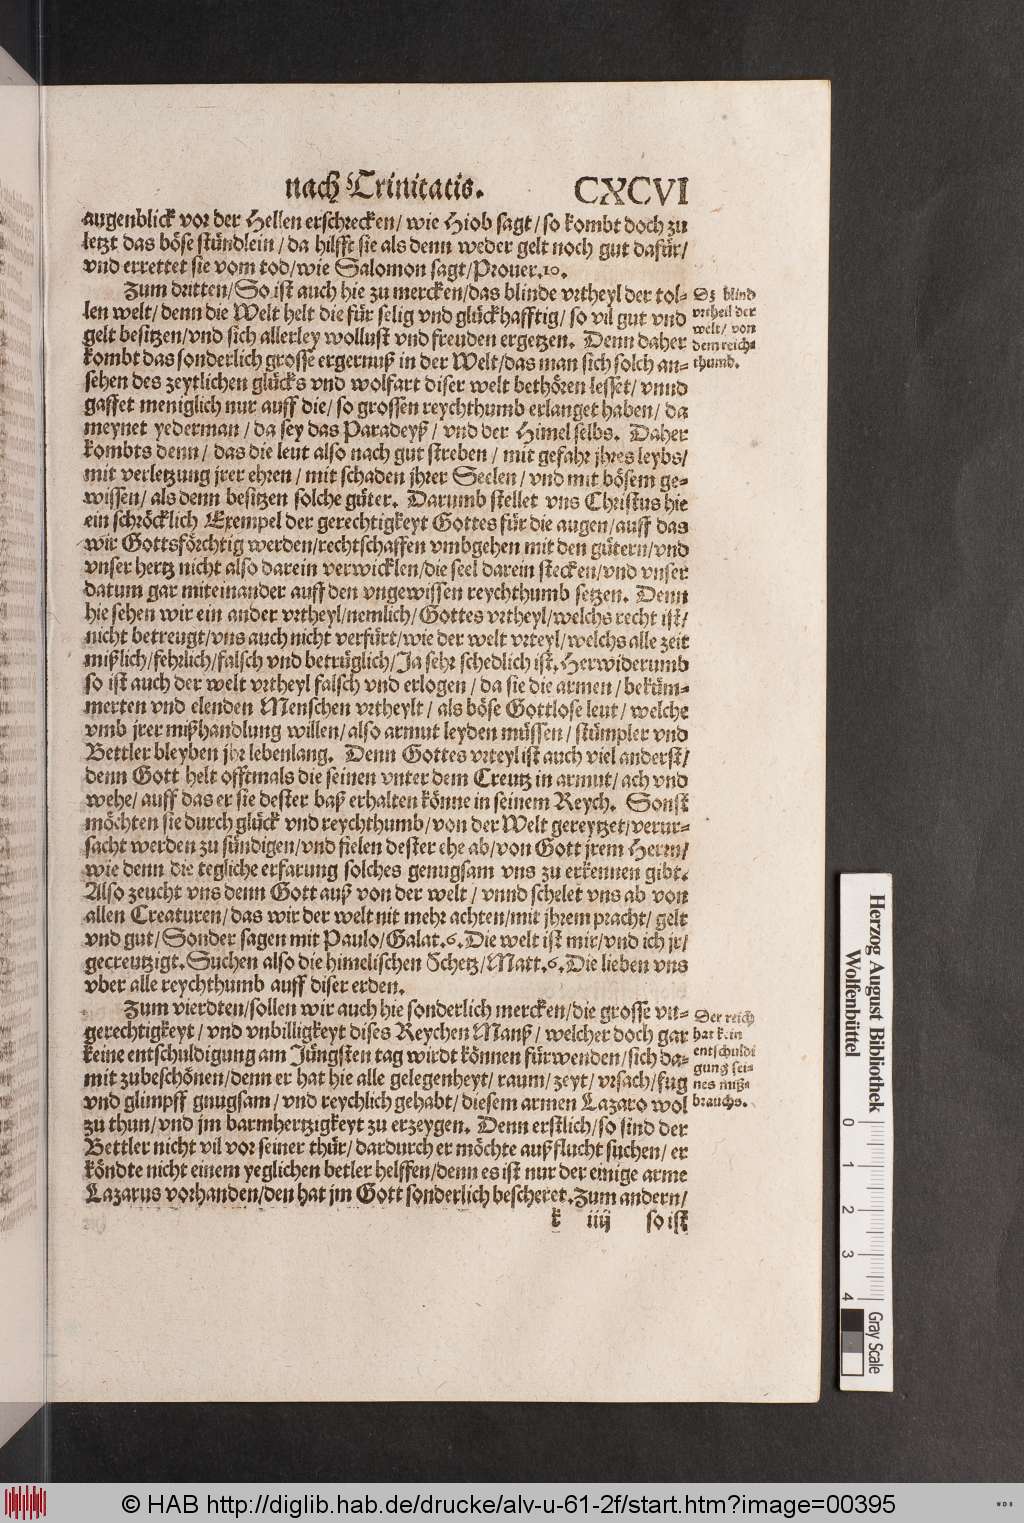 nach Trinitatis. CXCVI
augenblick vor der Hellen erschrecken/ wie Hiob sagt/ so kombt doch zu
letzt das böse stündlein/ da hilfft sie als denn weder gelt noch gut dafür/
vnd errettet sie vom tod/ wie Salomon sagt/ Prouer. 10.
Zum dritten/ So ist auch hie zu mercken/ das blinde vrtheyl der tol-
len welt/ denn die Welt helt die für selig vnd glückhafftig/ so vil gut vnd
gelt besitzen/ vnd sich allerley wollust vnd freuden ergetzen. Denn daher
kombt das sonderlich grosse ergernuß in der Welt/ das man sich solch an-
sehen des zeytlichen glücks vnd wolfart diser welt bethören lesset/ vnnd
gaffet meniglich nur auff die/ so grossen reychthumb erlanget haben/ da
meynet yederman/ da sey das Paradeyß/ vnd der Himel selbs. Daher
kombts denn/ das die leut also nach gut streben/ mit gefahr jhres leybs/
mit verletzung jrer ehren/ mit schaden jhrer Seelen/ vnd mit bösem ge-
wissen/ als denn besitzen solche güter. Darumb stellet vns Christus hie
ein schröcklich Exempel der gerechtigkeyt Gottes für die augen/ auff das
wir Gottsförchtig werden/ rechtschaffen vmbgehen mit den gütern/ vnd
vnser hertz nicht also darein verwicklen/ die seel darein stecken/ vnd vnser
datum gar miteinander auff den vngewissen reychthumb setzen. Denn
hie sehen wir ein ander vrtheyl/ nemlich/ Gottes vrtheyl/ welchs recht ist/
nicht betreugt/ vns auch nicht verfürt/ wie der welt vrteyl/ welchs alle zeit
mißlich/ fehrlich/ falsch vnd betrüglich/ Ja sehr schedlich ist. Herwiderumb
so ist auch der welt vrtheyl falsch vnd erlogen/ da sie die armen/ beküm-
merten vnd elenden Menschen vrtheylt/ als böse Gottlose leut/ welche
vmb jrer mißhandlung willen/ also armut leyden müssen/ stümpler vnd
Bettler bleyben jhr lebenlang. Denn Gottes vrteyl ist auch viel anderst/
denn Gott helt offtmals die seinen vnter dem Creutz in armut/ ach vnd
wehe/ auff das er sie dester baß erhalten könne in seinem Reych. Sonst
möchten sie durch glück vnd reychthumb/ von der Welt gereytzet/ verur-
sacht werden zu sündigen/ vnd fielen dester ehe ab/ von Gott jrem Herrn/
wie denn die tegliche erfarung solches genugsam vns zu erkennen gibt.
Also zeucht vns denn Gott auß von der welt/ vnnd schelet vns ab von
allen Creaturen/ das wir der welt nit mehr achten/ mit jhrem pracht/ gelt
vnd gut/ Sonder sagen mit Paulo/ Galat. 6. Die welt ist mir/ vnd ich jr/
gecreutzigt. Suchen also die himelischen Schetz/ Matt. 6. Die lieben vns
vber alle reychthumb auff diser erden.
Zum vierdten/ sollen wir auch hie sonderlich mercken/ die grosse vn-
gerechtigkeyt/ vnd vnbilligkeyt dises Reychen Manß/ welcher doch gar
keine entschuldigung am Jüngsten tag wirdt können fürwenden/ sich da-
mit zubeschönen/ denn er hat hie alle gelegenheyt/ raum/ zeyt/ vrsach/ fug
vnd glimpff gnugsam/ vnd reychlich gehabt/ diesem armen Lazaro wol
zu thun/ vnd jm barmhertzigkeyt zu erzeygen. Denn erstlich/ so sind der
Bettler nicht vil vor seiner thür/ dardurch er möchte außflucht suchen/ er
köndte nicht einem yeglichen betler helffen/ denn es ist nur der einige arme
Lazarus vorhanden/ den hat jm Gott sonderlich bescheret. Zum andern/
k iiij so ist
Dz blind
vrtheil der
welt/ von
dem reich-
thumb.
Der reich
hat kein
entschuldi
gung sei-
nes miß-
brauchs.
Herzog August Bibliothek
Wolfenbüttel
0 1 2 3 4
Gray Scale
© HAB http://diglib.hab.de/drucke/alv-u-61-2f/start.htm?image=00395